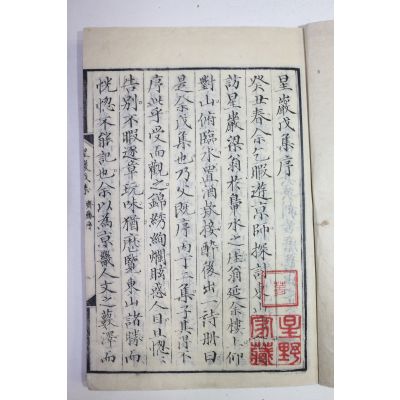 星巖戊集序
癸丑春余乞暇遊京師探討東山
訪星巖梁翁於鴨水之上翁延余樓上仰
對山俯臨水置酒歡接醉後出一詩册曰
是余戊集也乃父既序丙丁二集子其得不
序此乎受而觀之錦綉絢爛眩惑人目且怱
告別不暇逐章玩味猶歷覽東山諸勝而
恍惚不能記也余以為京畿人文之藪澤而
星巖戊集
星野
家藏